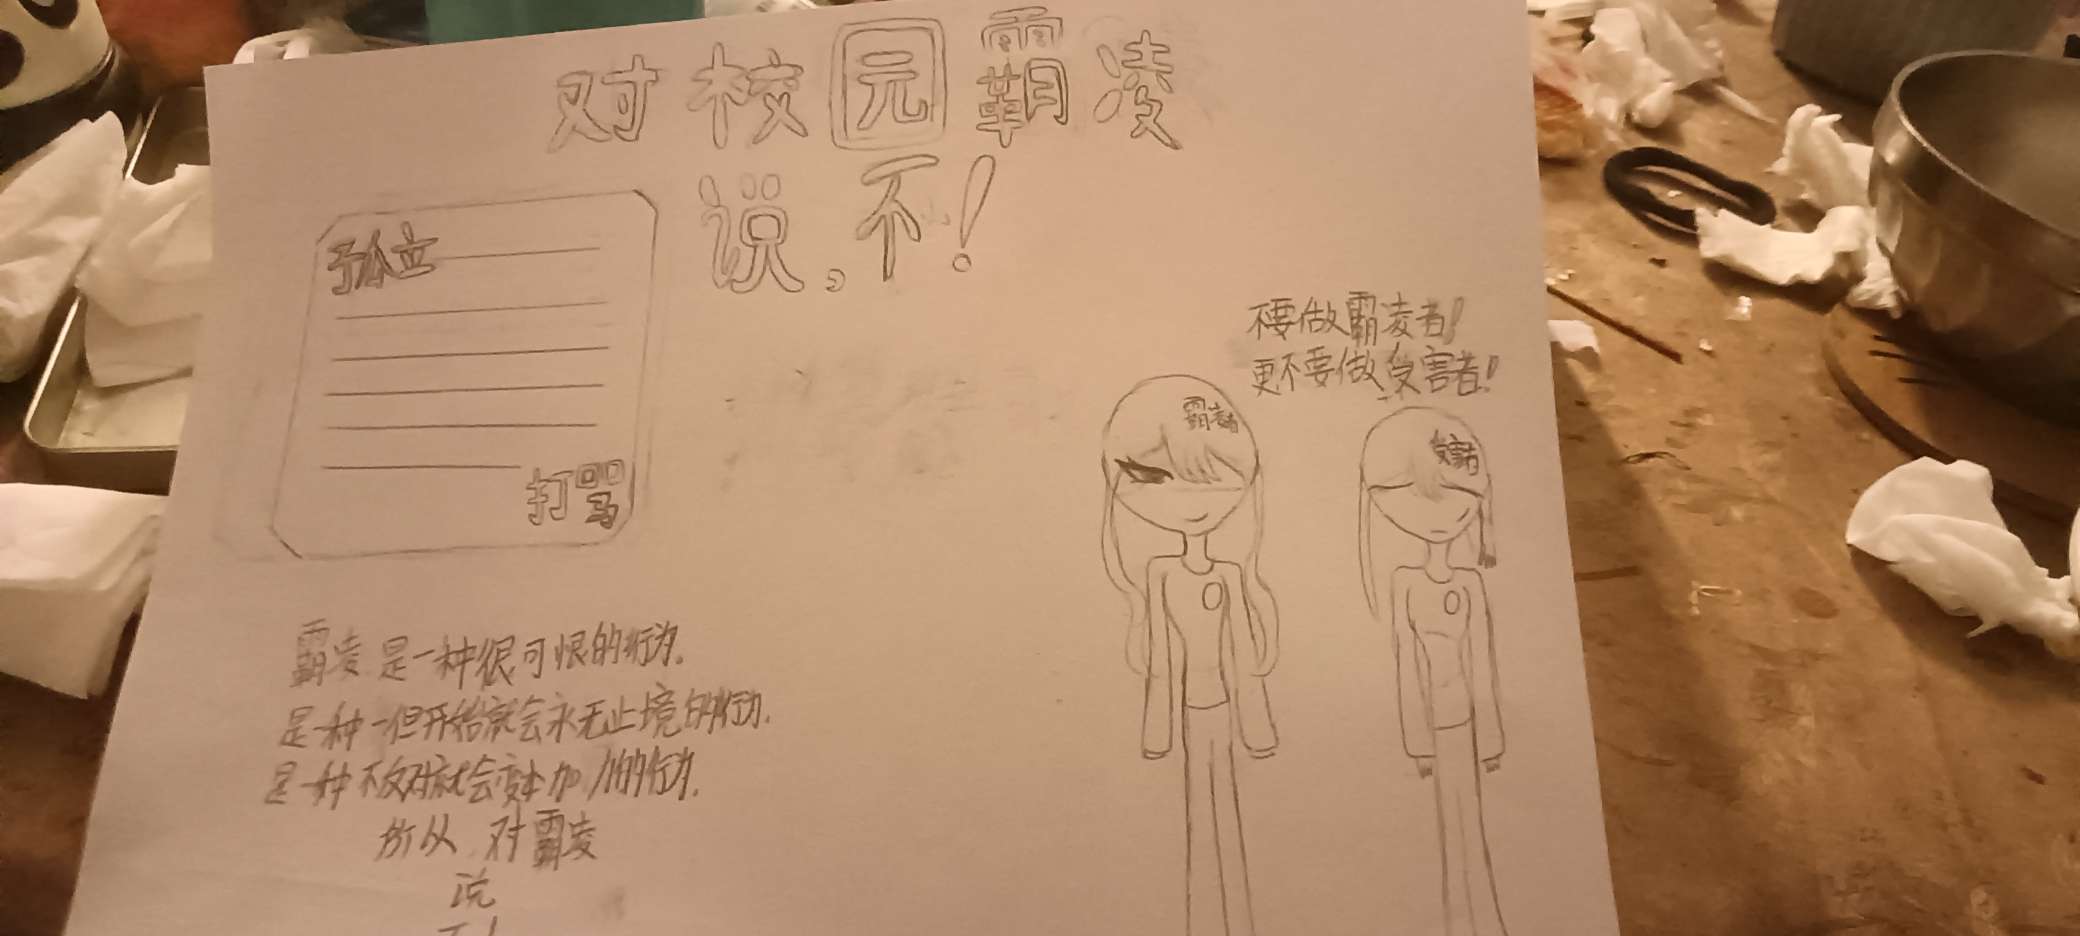 对校园霸凌
说,不!
孤立
打骂
不要做霸凌者!
更不要做受害者!
霸凌者
受害者
霸凌是一种很可恨的行为.
是一种一但开始就会永无止境的行动.
是一种不反对就会变本加厉的行为.
所以,对霸凌
说
不!